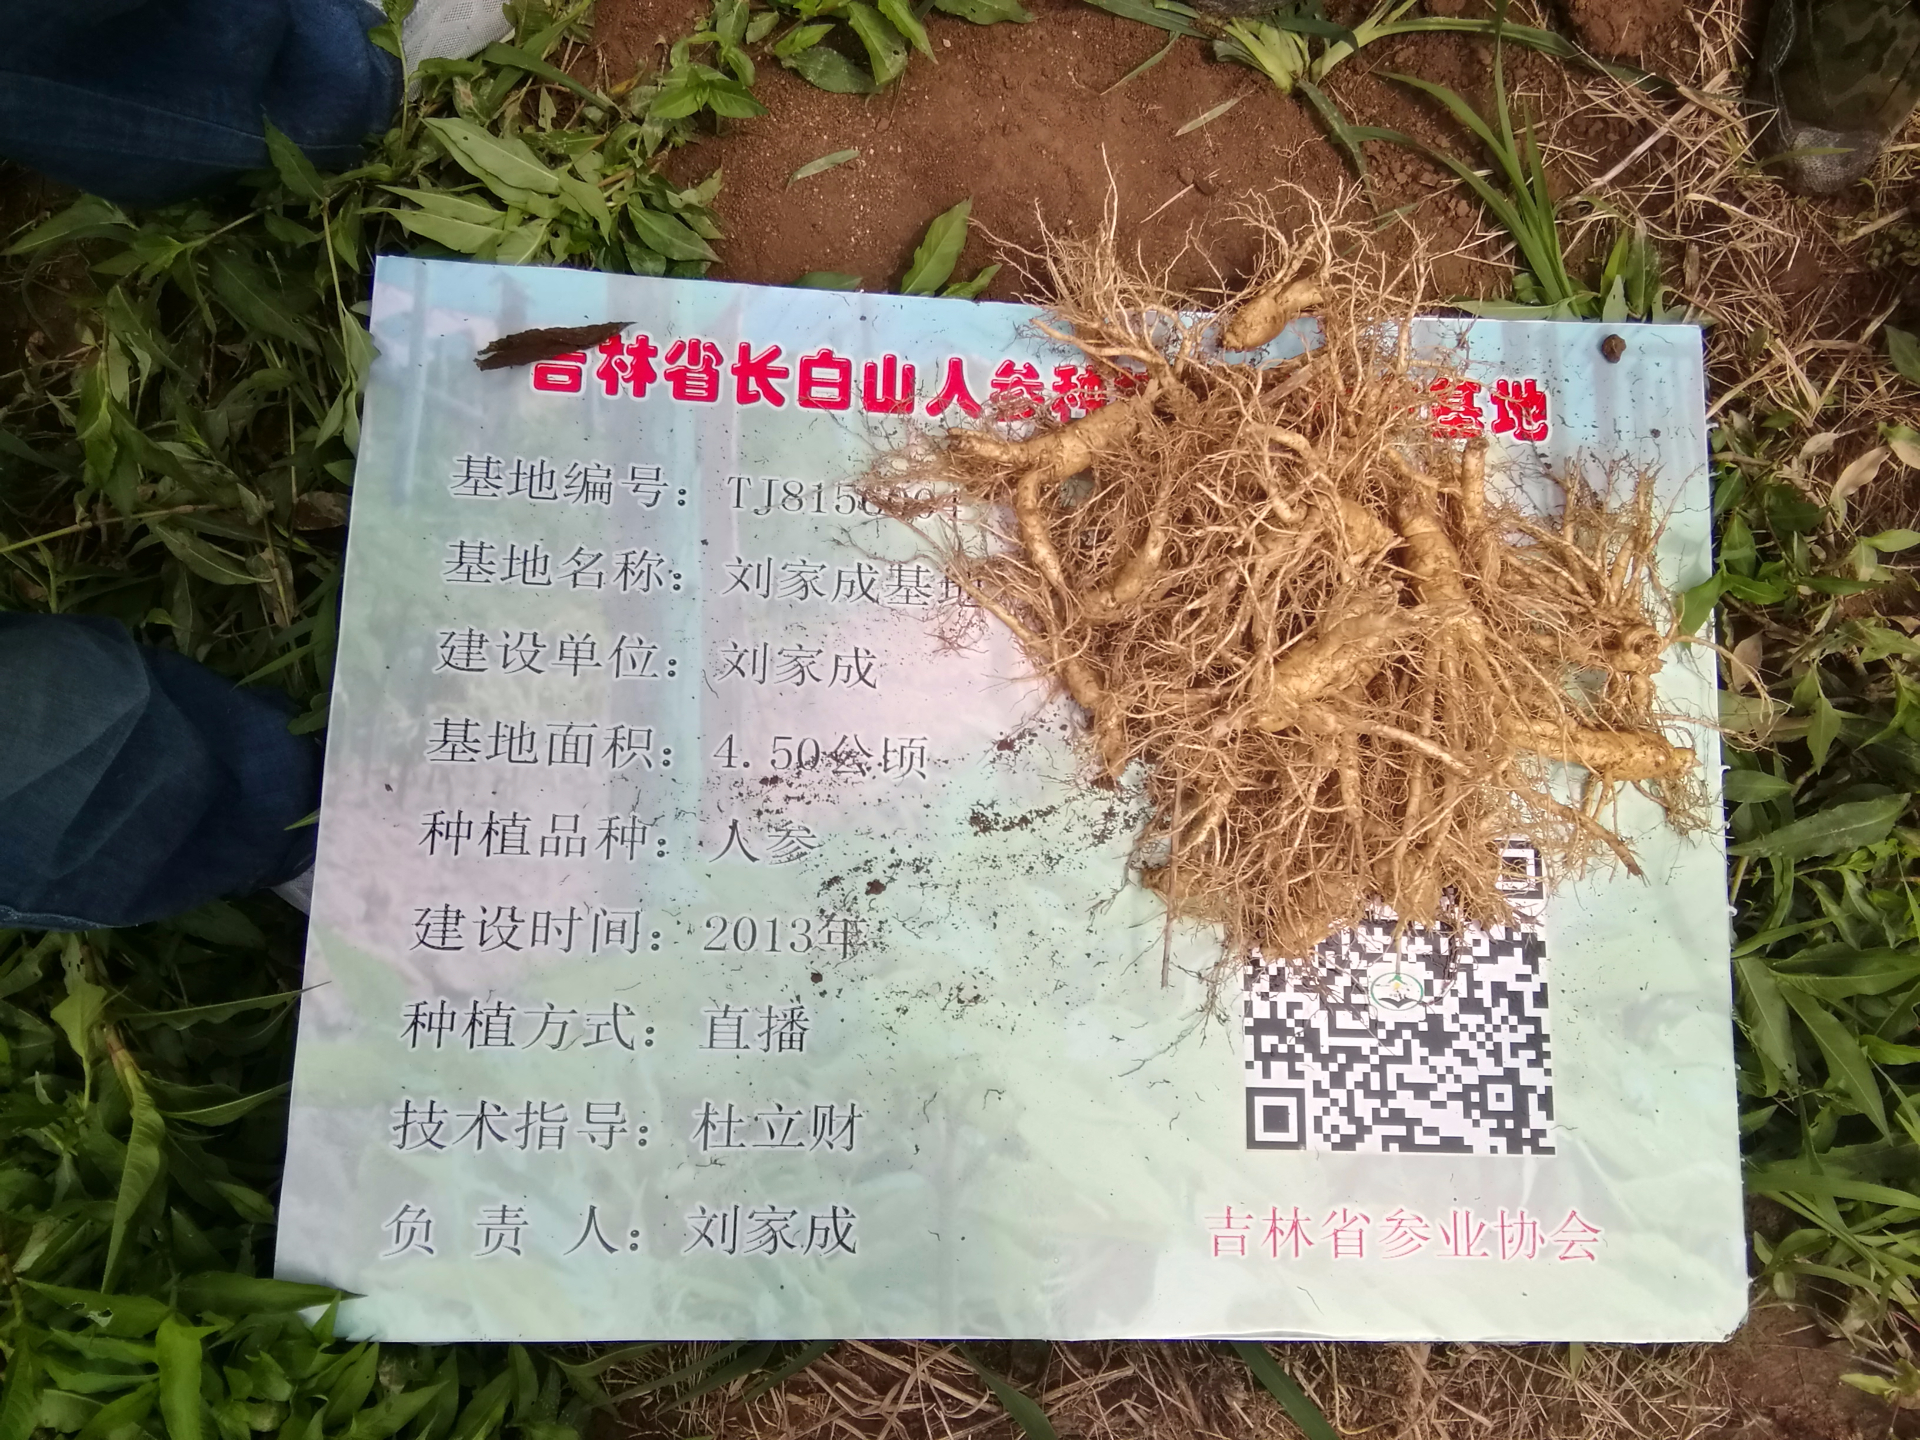 吉林省长白山人参种 基地
基地编号：TJ815
基地名称：刘家成基地
建设单位：刘家成
基地面积：4.50公顷
种植品种：人参
建设时间：2013年
种植方式：直播
技术指导：杜立财
负 责 人：刘家成
吉林省参业协会